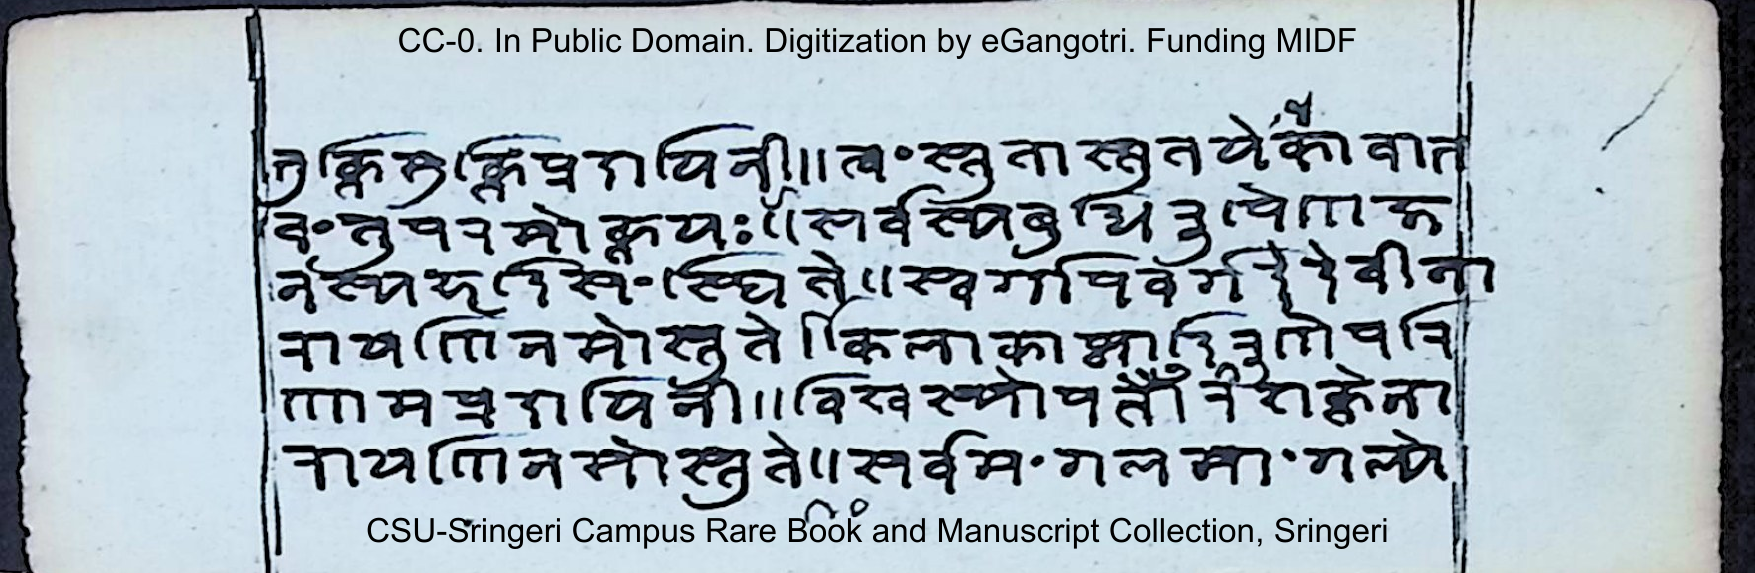 CC-0. In Public Domain. Digitization by eGangotri. Funding MIDF
भुक्तिमुक्तिप्रदायिनी ॥ त्वं स्तुता स्तुतये का वा भ
वंतु परमोक्तयः ॥ सर्वस्य बुद्धिरुपेण ज
नस्य हृदि संस्थिते ॥ स्वर्गापवर्गदे देवी ना
रायणि नमोस्तुते ॥ कलाकाष्ठादिरुपेण परि
णामप्रदायिनी ॥ विश्वस्योपरतौ शक्ते ना
रायणि नमोस्तुते ॥ सर्वमंगलमांगल्ये
CSU-Sringeri Campus Rare Book and Manuscript Collection, Sringeri